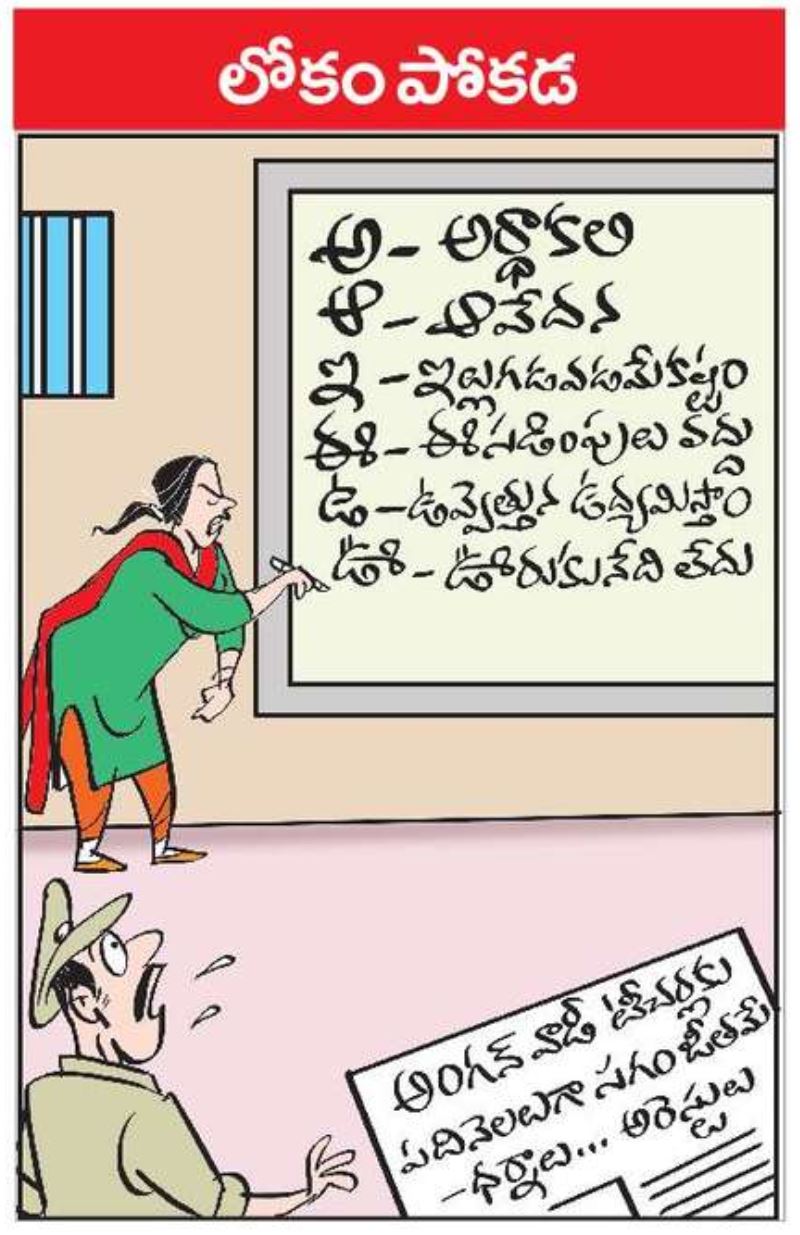 లోకం పోకడ
అ - అర్ధాకలి
ఆ - ఆవేదన
ఇ - ఇల్లుగడువడమేకష్టం
ఈ - ఈసడింపులు వద్దు
ఉ - ఉవ్వెత్తున ఉద్యమిస్తాం
ఊ - ఊరుకునేది లేదు
అంగన్ వాడీ టీచర్లకు
పదినెలలుగా సగంజీతమే
- ధర్నాలు... అరెస్టులు